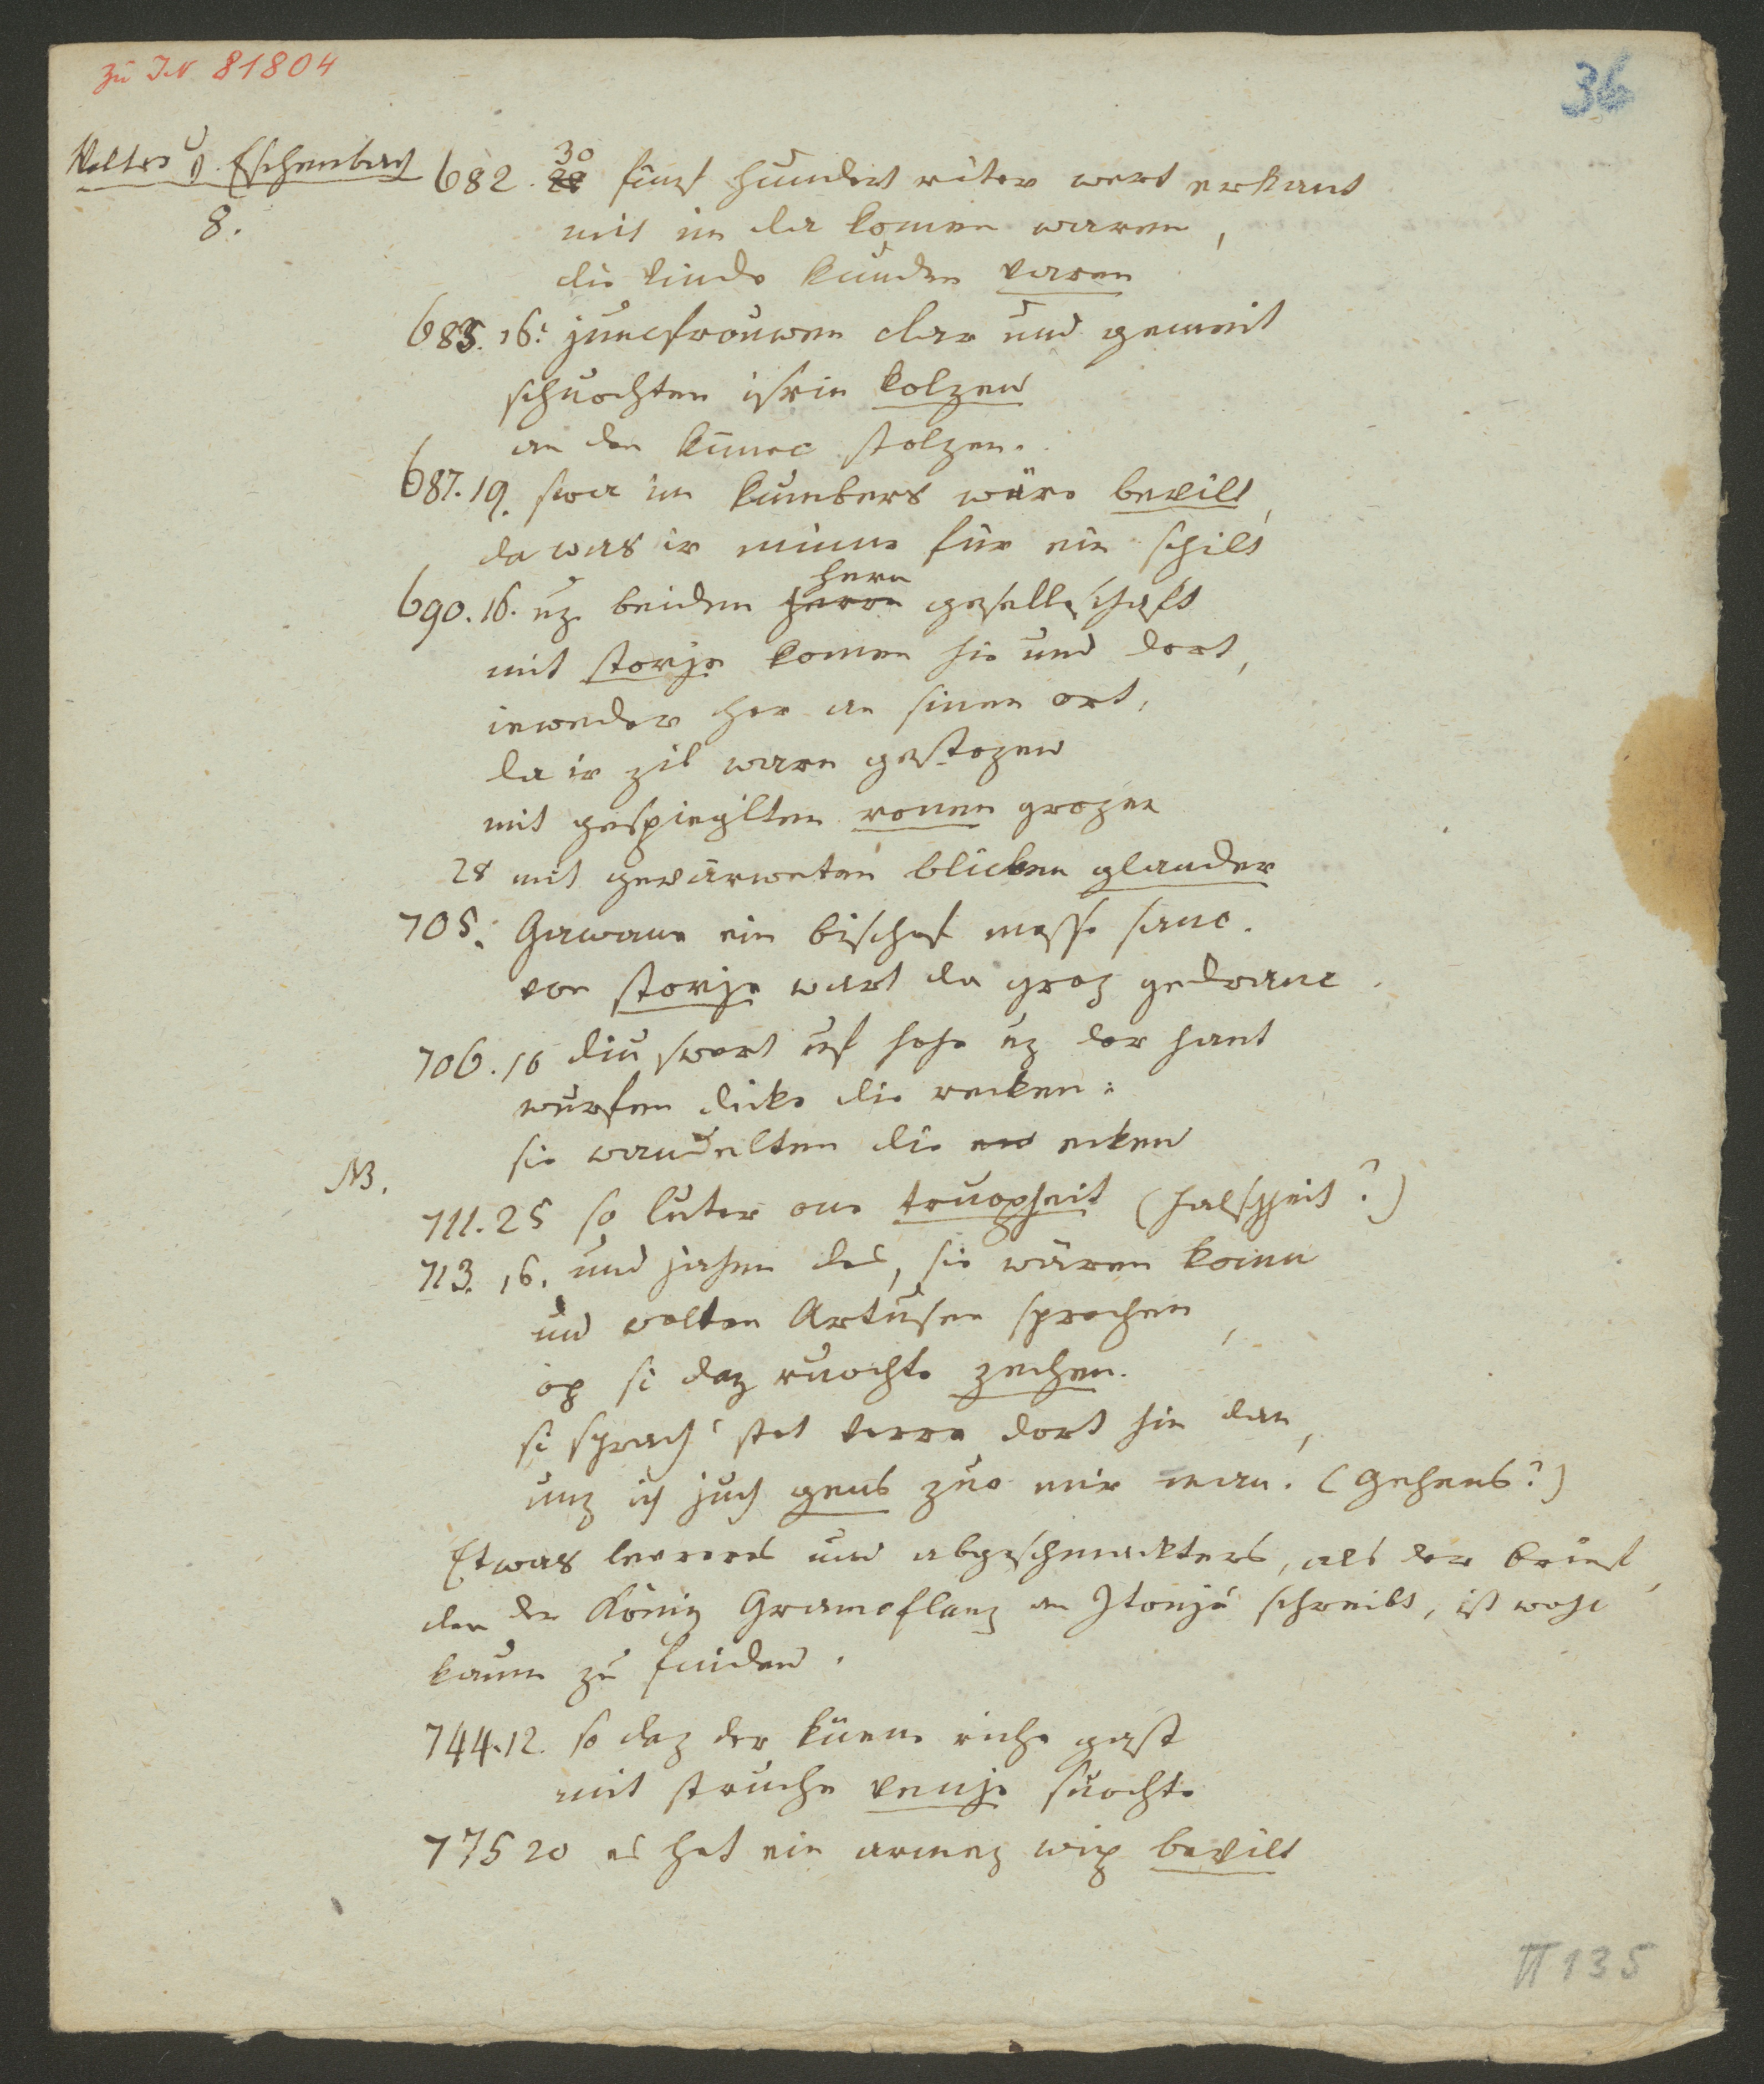 zu IN 81804
36
Wolfr. v. Eschenbach
8.
682. 30 fünf hundert riter wert erkant
mit im da komen waren,
die linde kunden varen
683. 16. juncfrouwen clar und gemeit
schuochten isrin kolzen
an den künec stolzen.
687. 19. swa im kumbers wäre bevilt,
da was ir minne für ein schilt
690. 16. uz beiden hern geselleschaft
mit storje komen hie und dort,
ieweder her an sinen ort,
da ir zil warn gestozen
mit gespiegilten ronen grozen
28 mit gevärweten blicken glander
705. Gawane ein bischof messe sanc.
von storje wart da groz gedranc.
706. 16 diu swert uf hohe uz der hant
wurfen dicke die recken:
sie wandelten die ecken
NB.
711. 25 so luter ane truopheit (falschheit?)
713. 16. und jahen des, sie wären komn
und wolten Artusen sprechen,
op si daz ruochte zechen.
si sprach 'stet verre dort hin dan,
unz ich juch gens zuo mir man. (Gehens?)
Etwas leereres und abgeschmackters, als der Brief,
den der König Gramoflanz an Itonjé schreibt, ist wohl
kaum zu finden.
744. 12. so daz der küene riche gast
mit struche venje suochte
775 20 es hat ein armez wip bevilt
II 135